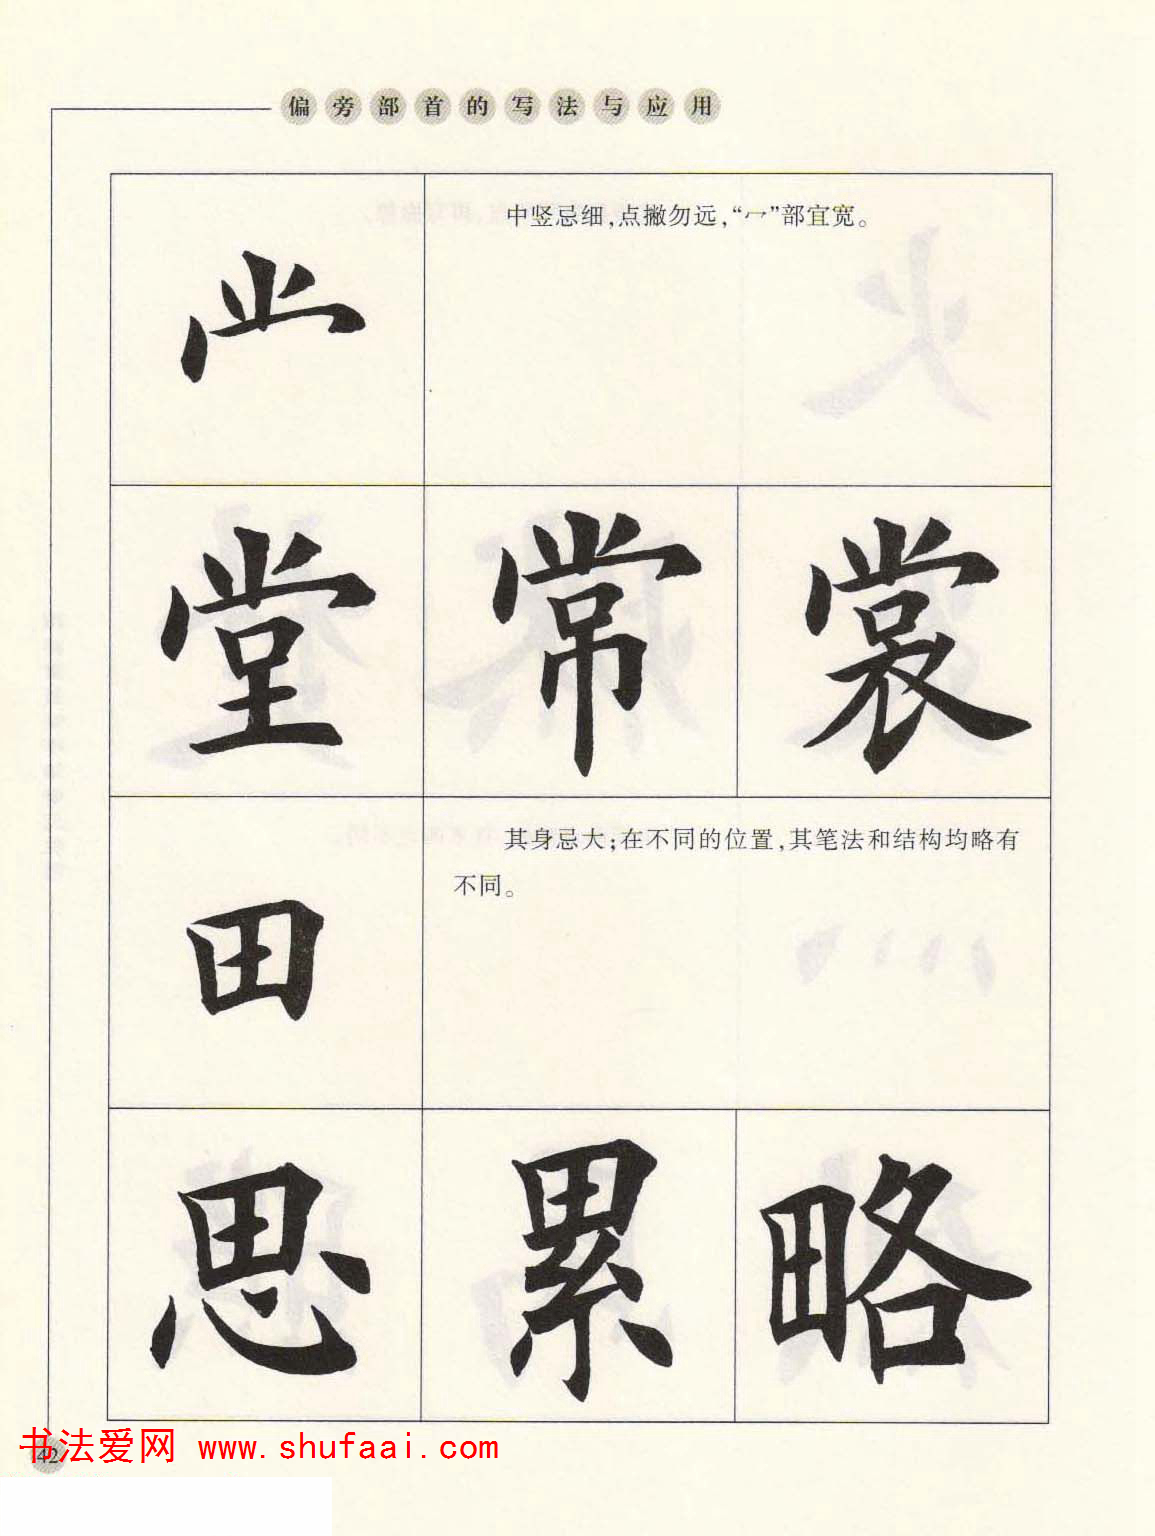 偏旁部首的写法与应用
中竖忌细,点撇勿远,“冖”部宜宽。
堂 常 裳
田
其身忌大;在不同的位置,其笔法和结构均略有
不同。
思 累 略
42
书法爱网 www.shufaai.com